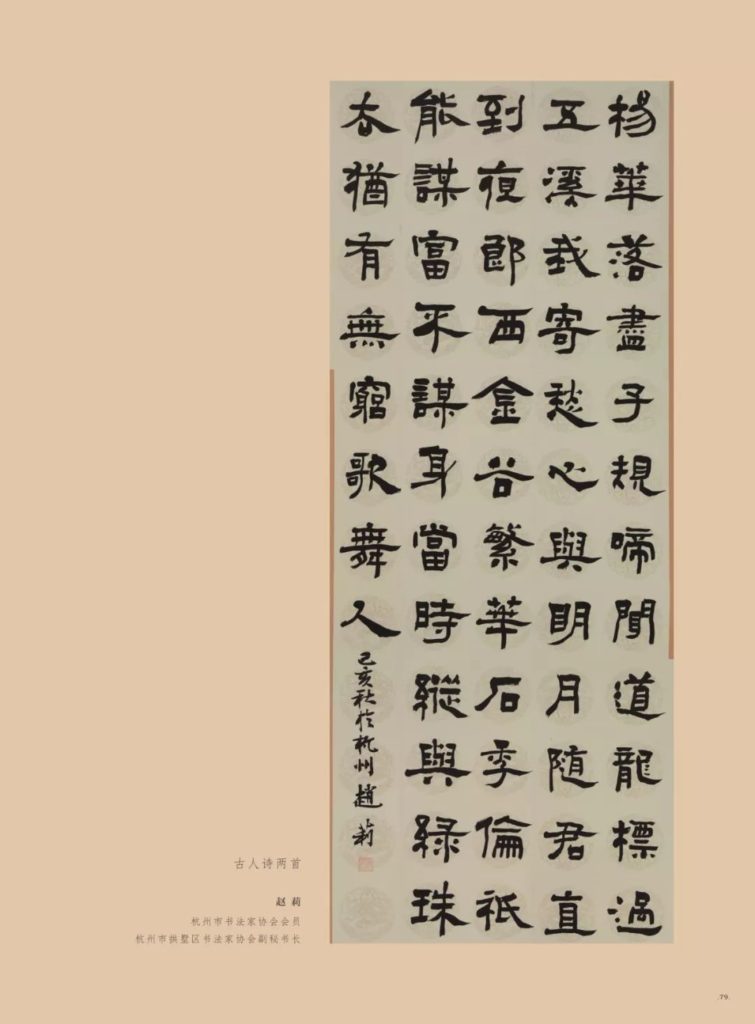 楊華落盡子規啼聞道龍標過
五溪我寄愁心與明月随君直
到夜郎西金谷繁華石季倫祇
能謀富不謀身當時縱與緑珠
去猶有無窮歌舞人
己亥秋於杭州趙莉
古人诗两首
赵莉
杭州市书法家协会会员
杭州市拱墅区书法家协会副秘书长
.79.